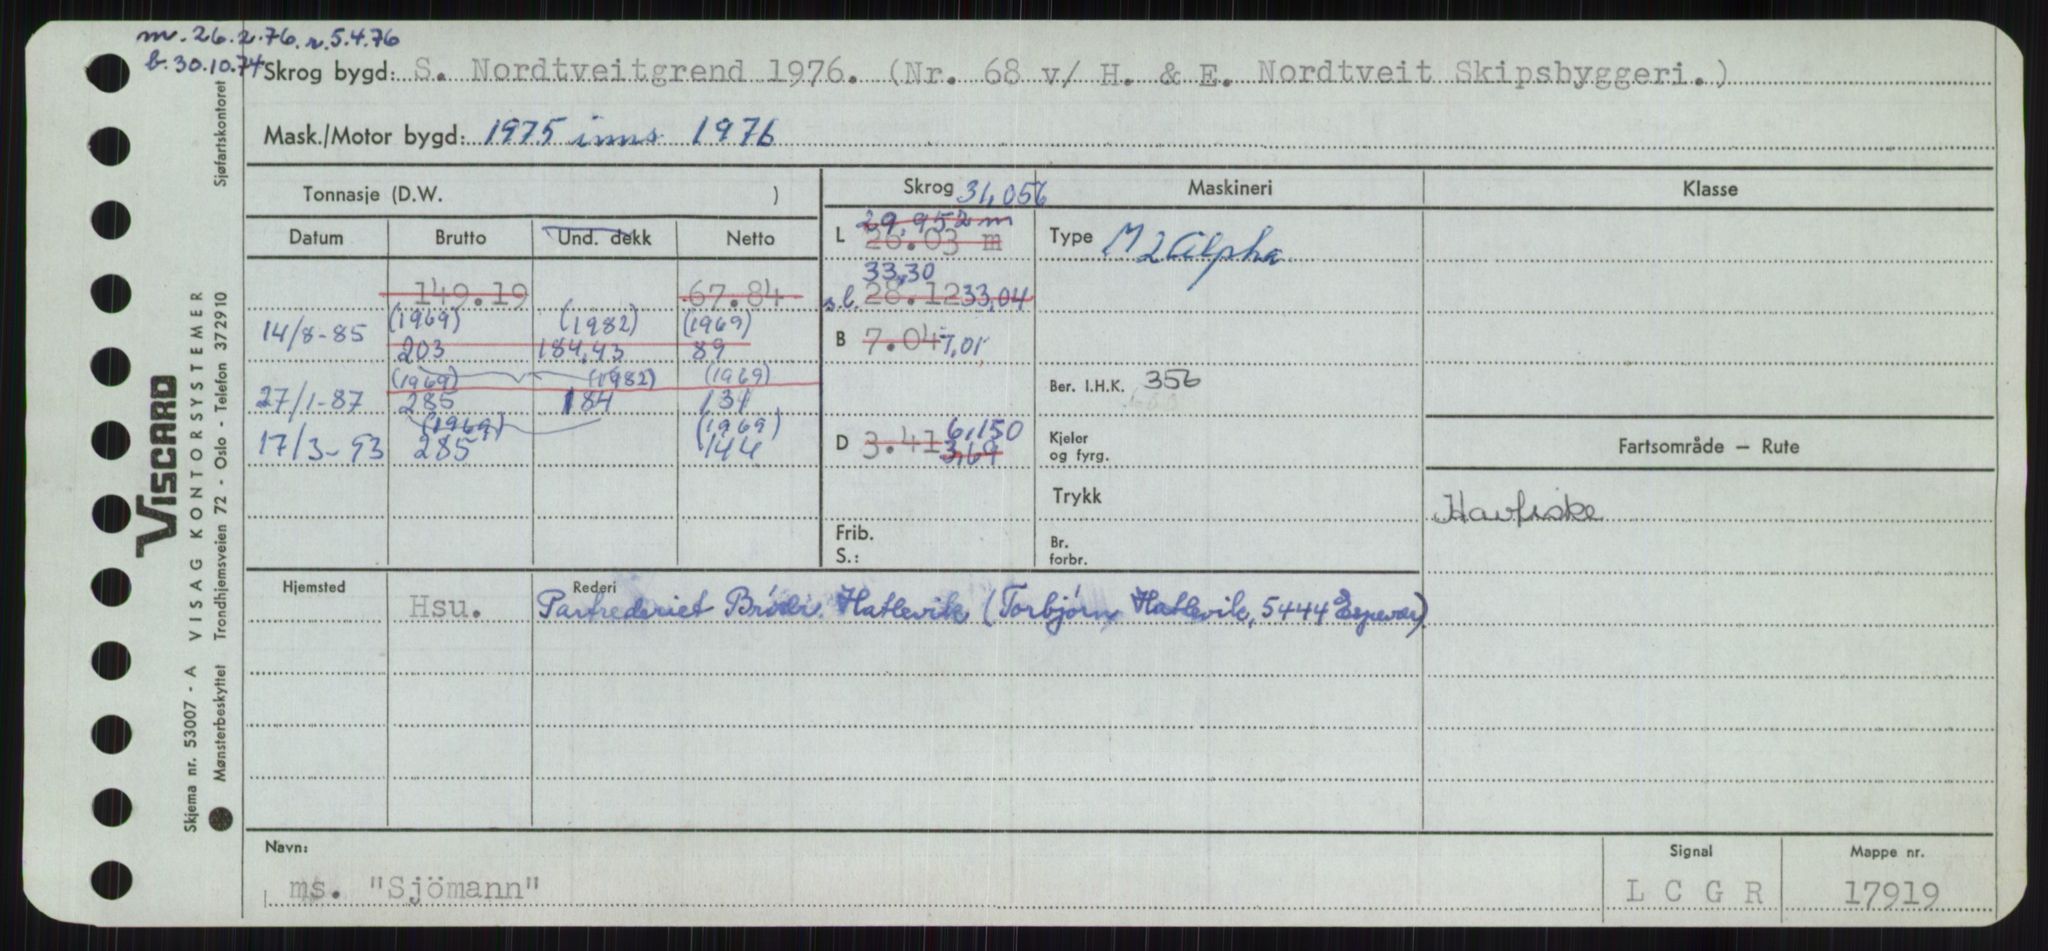 m. 26.2.76. r. 5.4.76
b. 30.10.74
Skrog bygd: S. Nordtveitgrend 1976. (Nr. 68 v/ H. & E. Nordtveit Skipsbyggeri.)
Mask./Motor bygd: 1975 inns 1976
Tonnasje (D.W. )
Skrog 31,056
Maskineri
Klasse
Datum Brutto Und. dekk Netto
L 29,952 m
26.03 m
Type M 2 Alpha
149.19 67.84
33,30
s.l. 28.12 33,04
(1969) (1982) (1969)
14/8-85 203 184,43 89
B 7.04 7,01
(1969) (1982) (1969)
27/1-87 285 184 134
Ber. I.H.K. 356
(1969) (1969)
17/3-93 285 144
D 3.41 6,150
3,69
Kjeler
og fyrg.
Fartsområde — Rute
Trykk
Havfiske
Frib.
S.:
Br.
forbr.
Hjemsted Rederi
Hsu. Partrederiet Brødr. Hatlevik (Torbjørn Hatlevik, 5444 Espevær)
Navn: Signal Mappe nr.
ms. "Sjömann" L C G R 17919
VISCARD
Skjema nr. 53007 - A VISAG KONTORSYSTEMER
Mønsterbeskyttet Trondhjemsveien 72 - Oslo - Telefon 372910 Sjøfartskontoret